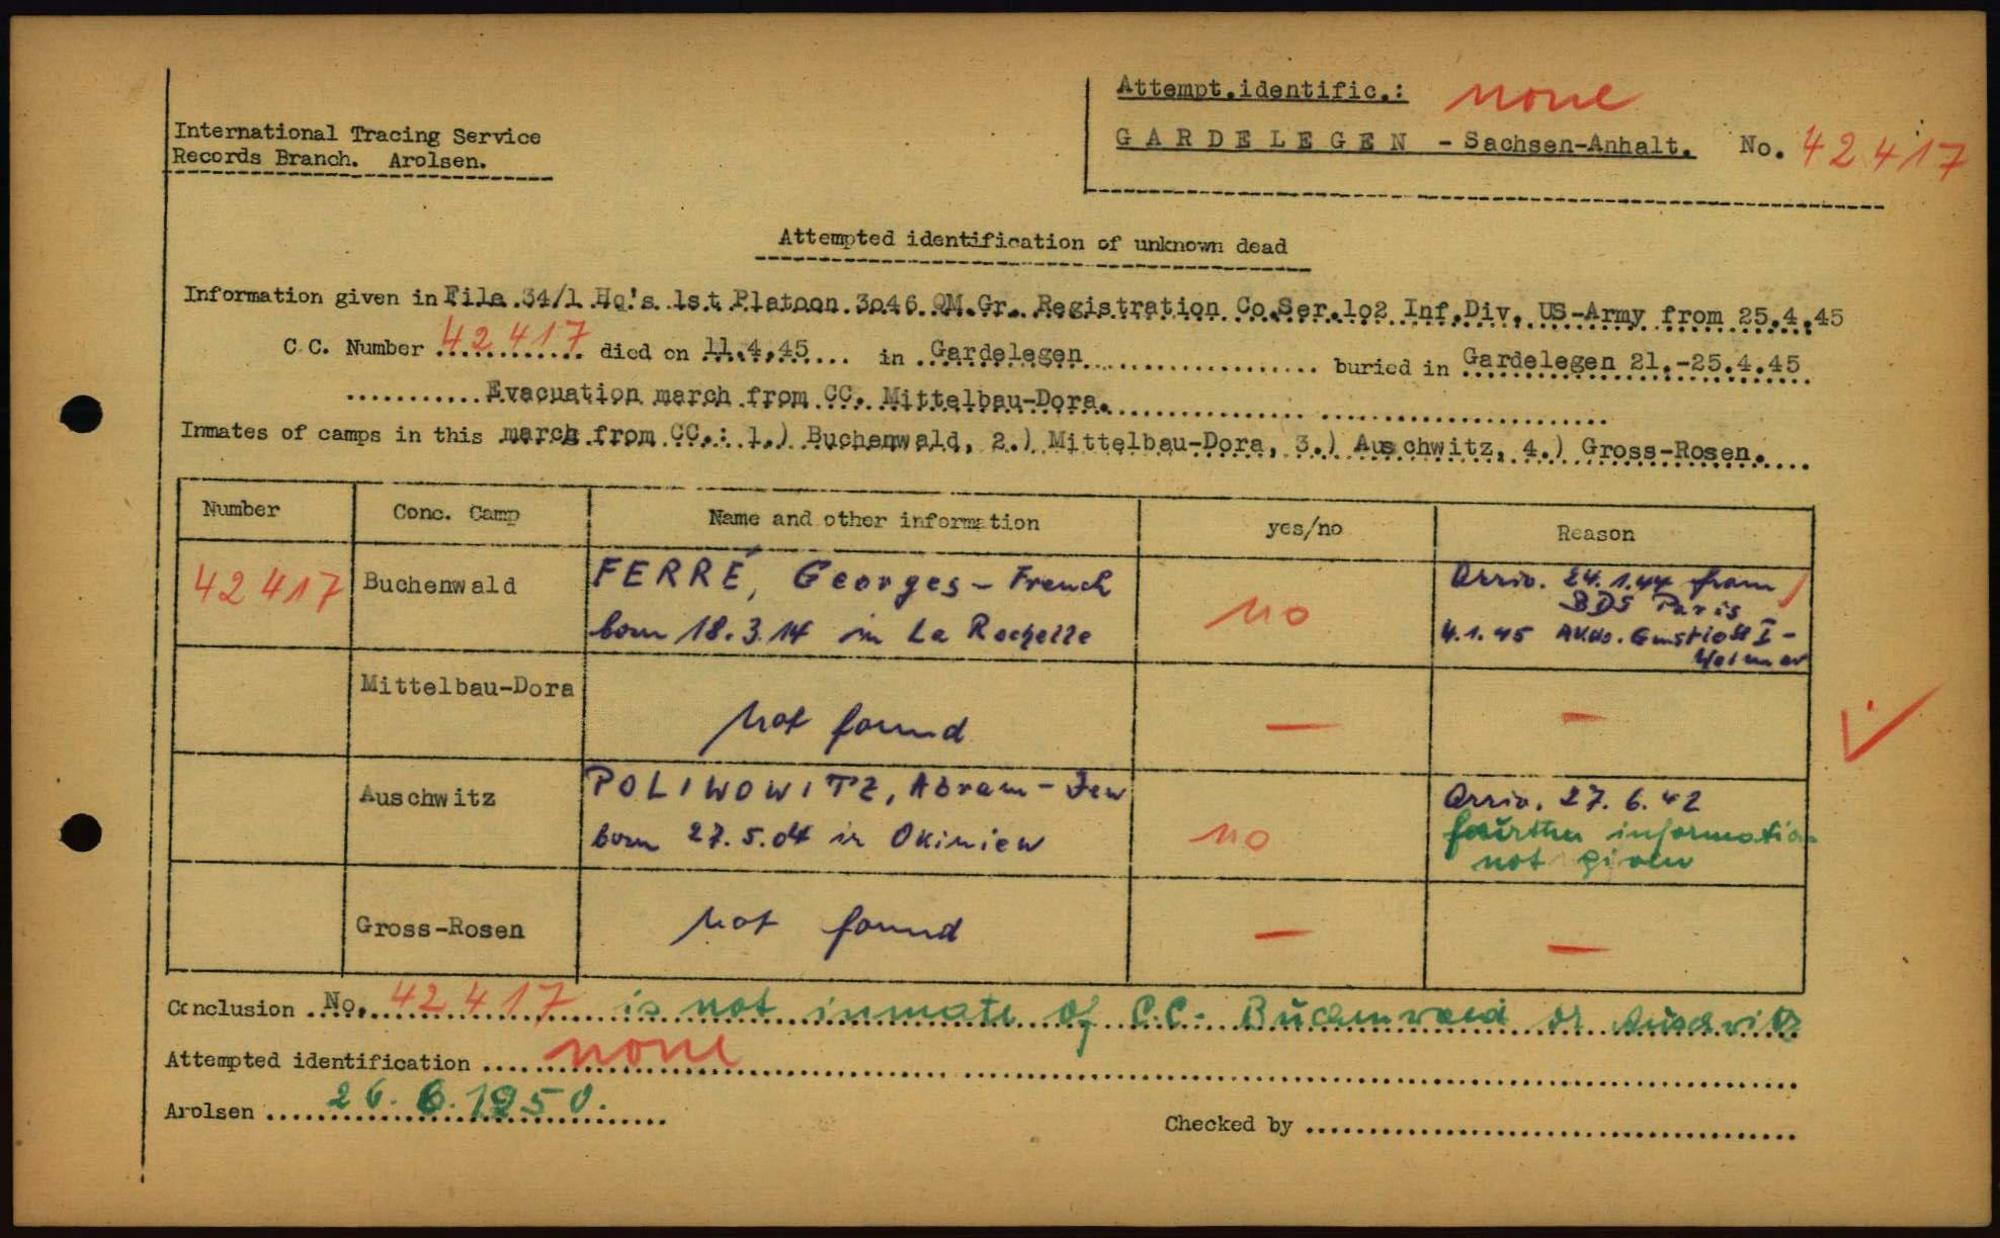 Attempt.identific.: none
International Tracing Service
Records Branch. Arolsen.
GARDELEGEN - Sachsen-Anhalt. No. 42417
Attempted identification of unknown dead
Information given in File 34/1 Hq's 1st Platoon 3046 QM.Gr. Registration Co.Ser.102 Inf.Div. US-Army from 25.4.45
C.C. Number 42417 died on 11.4.45 in Gardelegen buried in Gardelegen 21.-25.4.45
Evacuation march from CC. Mittelbau-Dora.
Inmates of camps in this march from CC.: 1.) Buchenwald, 2.) Mittelbau-Dora, 3.) Auschwitz, 4.) Gross-Rosen.
Number Conc. Camp Name and other information yes/no Reason
42417 Buchenwald FERRÉ, Georges - French no Arriv. 24.1.44 from
BDS Paris
born 18.3.14 in La Rochelle 4.1.45 AKdo. Gustloff I -
Weimar
Mittelbau-Dora not found — —
Auschwitz POLIWOWITZ, Abram - Jew no Arriv. 27.6.42
born 27.5.04 in Okuniew further information
not given
Gross-Rosen not found — —
Conclusion No. 42417 is not inmate of C.C. Buchenwald or Auschwitz
Attempted identification none
Arolsen 26.6.1950.
Checked by